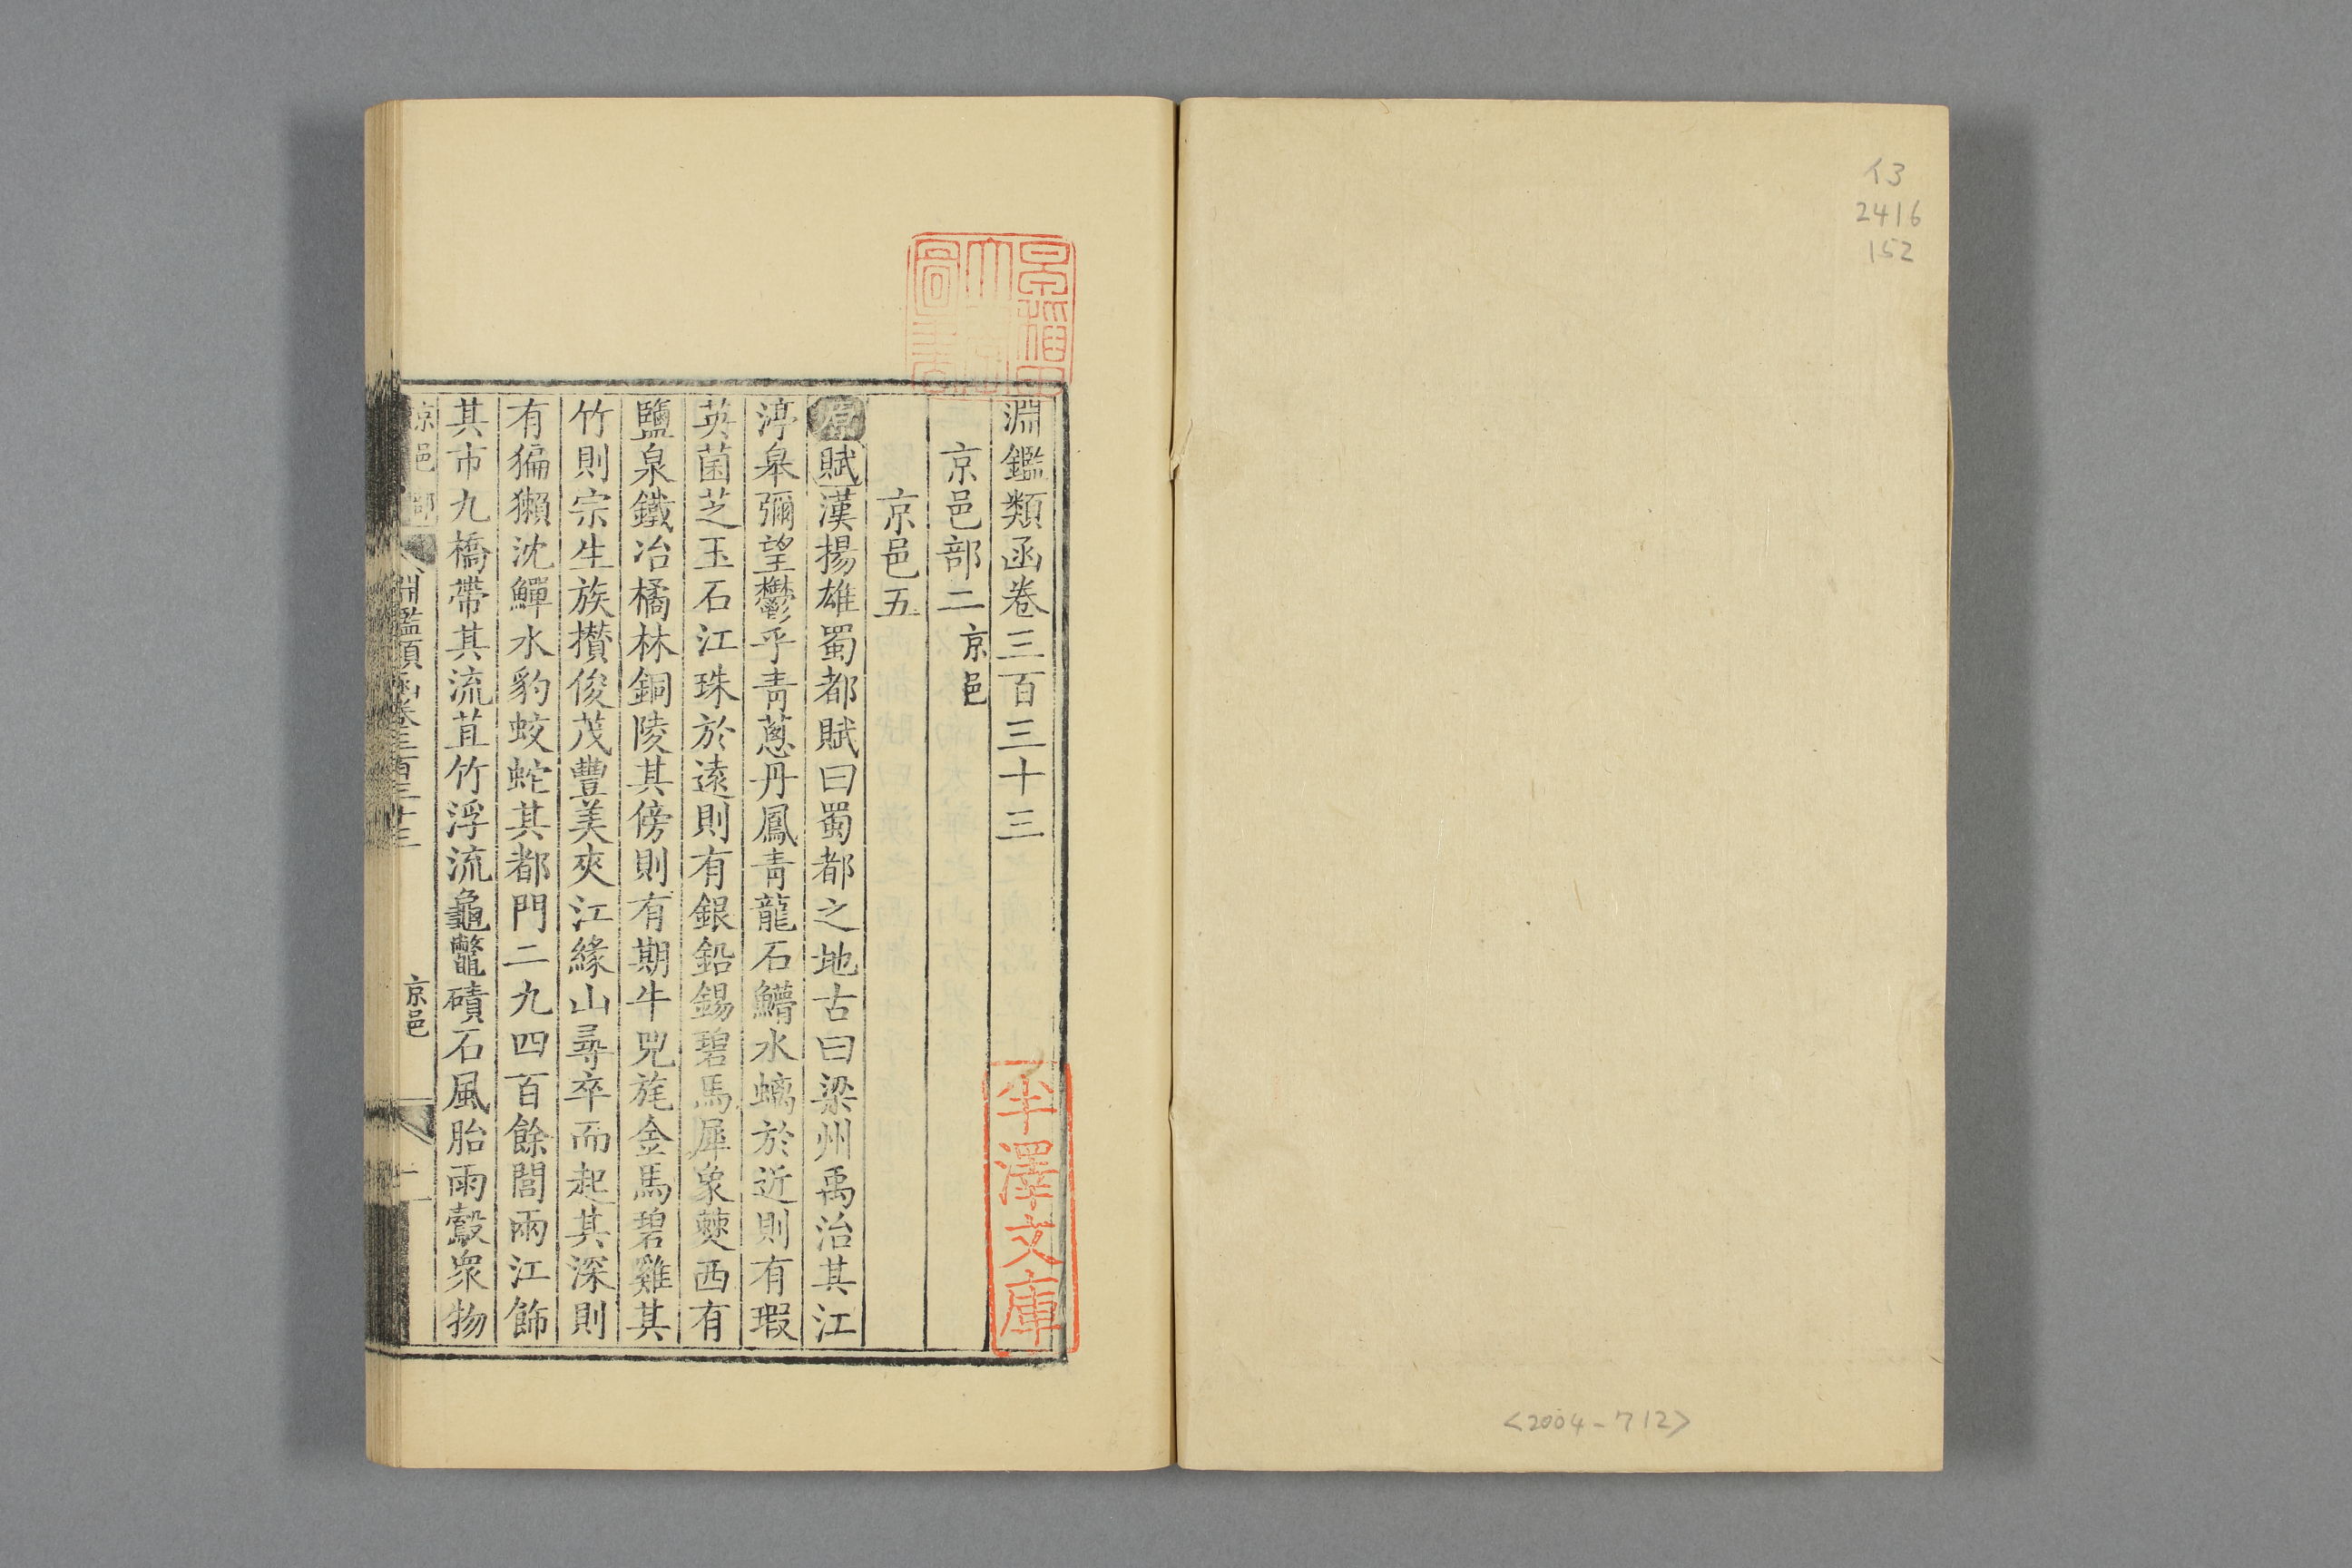 イ3
2416
152
<2004-712>
淵鑑類函卷三百三十三
京邑部二京邑
京邑五
原賦漢揚雄蜀都賦曰蜀都之地古曰梁州禹治其江
渟皋彌望鬱乎青蔥丹鳳青龍石鱕水螭於近則有瑕
英菌芝玉石江珠於遠則有銀鉛錫碧馬犀象僰西有
鹽泉鐵冶橘林銅陵其傍則有期牛兕旄金馬碧雞其
竹則宗生族攢俊茂豐美夾江緣山尋卒而起其深則
有猵獺沈鱓水豹蛟蛇其都門二九四百餘閭兩江飾
其市九橋帶其流苴竹浮流龜鼈磧石風胎雨鷇衆物
京邑部 淵鑑類函卷三百三十三 京邑 一
半澤文庫
早稻田大學圖書